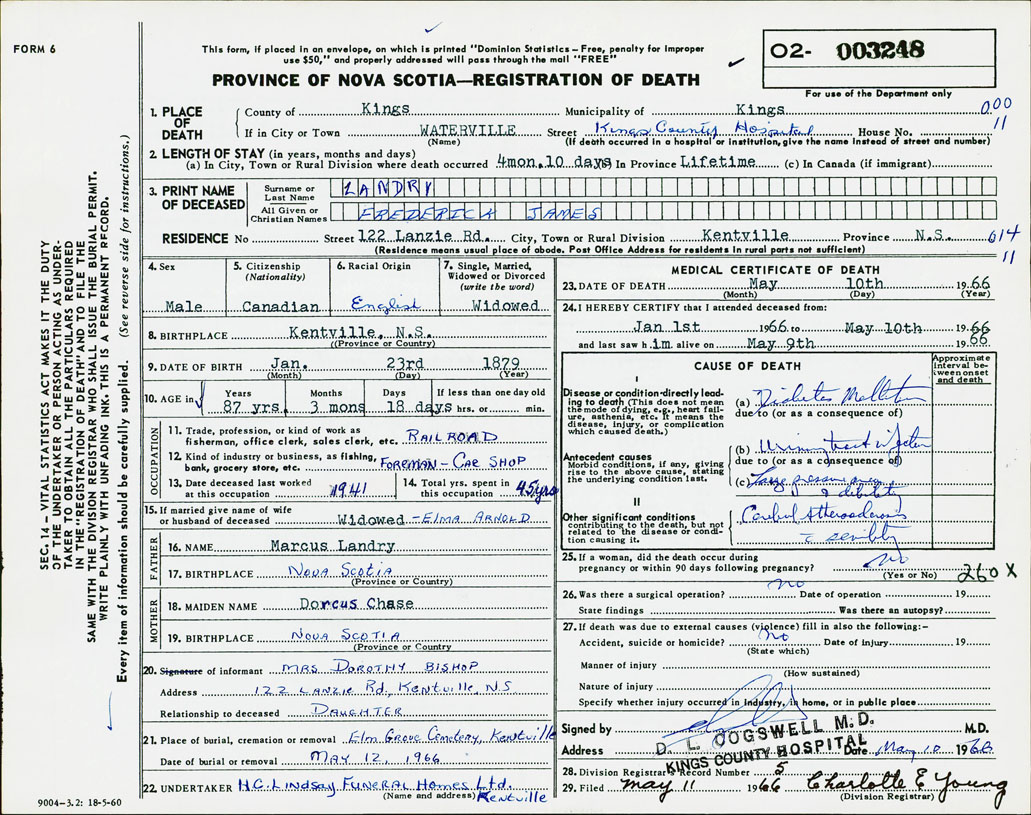 FORM 6
This form, if placed in an envelope, on which is printed "Dominion Statistics – Free, penalty for improper
use $50," and properly addressed will pass through the mail "FREE"
PROVINCE OF NOVA SCOTIA—REGISTRATION OF DEATH
O2- 003248
For use of the Department only
SEC. 14 – VITAL STATISTICS ACT MAKES IT THE DUTY
OF THE UNDERTAKER OR PERSON ACTING AS UNDER-
TAKER TO OBTAIN ALL THE PARTICULARS REQUIRED
IN THE "REGISTRATION OF DEATH" AND TO FILE THE
SAME WITH THE DIVISION REGISTRAR WHO SHALL ISSUE THE BURIAL PERMIT.
WRITE PLAINLY WITH UNFADING INK. THIS IS A PERMANENT RECORD.
Every item of information should be carefully supplied. (See reverse side for instructions.)
1. PLACE OF DEATH
County of Kings Municipality of Kings 000
If in City or Town WATERVILLE Street Kings County Hospital House No. 11
(Name) (If death occurred in a hospital or institution, give the name instead of street and number)
2. LENGTH OF STAY (in years, months and days)
(a) In City, Town or Rural Division where death occurred 4mon. 10 days In Province Lifetime (c) In Canada (if immigrant)
3. PRINT NAME OF DECEASED
Surname or Last Name LANDRY
All Given or Christian Names FREDERICK JAMES
RESIDENCE No Street 122 Lanzie Rd. City, Town or Rural Division Kentville Province N.S. 614
(Residence means usual place of abode. Post Office Address for residents in rural parts not sufficient) 11
4. Sex Male
5. Citizenship (Nationality) Canadian
6. Racial Origin English
7. Single, Married, Widowed or Divorced (write the word) Widowed
8. BIRTHPLACE Kentville, N.S.
(Province or Country)
9. DATE OF BIRTH Jan. 23rd 1879
(Month) (Day) (Year)
10. AGE in Years Months Days If less than one day old
87 yrs. 3 mons 18 days hrs. or min.
OCCUPATION
11. Trade, profession, or kind of work as
fisherman, office clerk, sales clerk, etc. RAILROAD
12. Kind of industry or business, as fishing,
bank, grocery store, etc. FOREMAN - CAR SHOP
13. Date deceased last worked
at this occupation 1941
14. Total yrs. spent in
this occupation 45yrs
15. If married give name of wife
or husband of deceased Widowed - ELMA ARNOLD
FATHER
16. NAME Marcus Landry
17. BIRTHPLACE NOVA SCOTIA
(Province or Country)
MOTHER
18. MAIDEN NAME Dorcus Chase
19. BIRTHPLACE NOVA SCOTIA
(Province or Country
20. Signature of informant MRS DOROTHY BISHOP
Address 122 LANZIE Rd, KENTVILLE, N.S
Relationship to deceased DAUGHTER
21. Place of burial, cremation or removal Elm Grove Cemetery, Kentville
Date of burial or removal MAY 12, 1966
22. UNDERTAKER H.C. LINDSAY FUNERAL HOMES Ltd.
(Name and address) Kentville
9004–3.2: 18-5-60
MEDICAL CERTIFICATE OF DEATH
23. DATE OF DEATH May 10th 1966
(Month) (Day) (Year)
24. I HEREBY CERTIFY that I attended deceased from:
Jan 1st 1966 to May 10th 1966
and last saw him alive on May 9th 1966
CAUSE OF DEATH
Approximate interval between onset and death
I
Disease or condition directly lead-
ing to death (This does not mean
the mode of dying, e.g., heart fail-
ure, asthenia, etc. It means the
disease, injury, or complication
which caused death.)
(a) Diabetes Mellitus
due to (or as a consequence of)
Antecedent causes
Morbid conditions, if any, giving
rise to the above cause, stating
the underlying condition last.
(b) Urinary tract infection
due to (or as a consequence of)
(c) Large pressure area
& debility
II
Other significant conditions
contributing to the death, but not
related to the disease or condi-
tion causing it.
Cerebral Atherosclerosis
c senility
25. If a woman, did the death occur during
pregnancy or within 90 days following pregnancy? no
(Yes or No) 260 X
26. Was there a surgical operation? no Date of operation 19
State findings Was there an autopsy?
27. If death was due to external causes (violence) fill in also the following:–
Accident, suicide or homicide? no Date of injury 19
(State which)
Manner of injury
(How sustained)
Nature of injury
Specify whether injury occurred in industry, in home, or in public place
Signed by M.D.
D. L. COGSWELL M.D.
Address KINGS COUNTY HOSPITAL Date May 10 1966
28. Division Registrar's Record Number 5
29. Filed May 11 1966 Charlotte E Young
(Division Registrar)